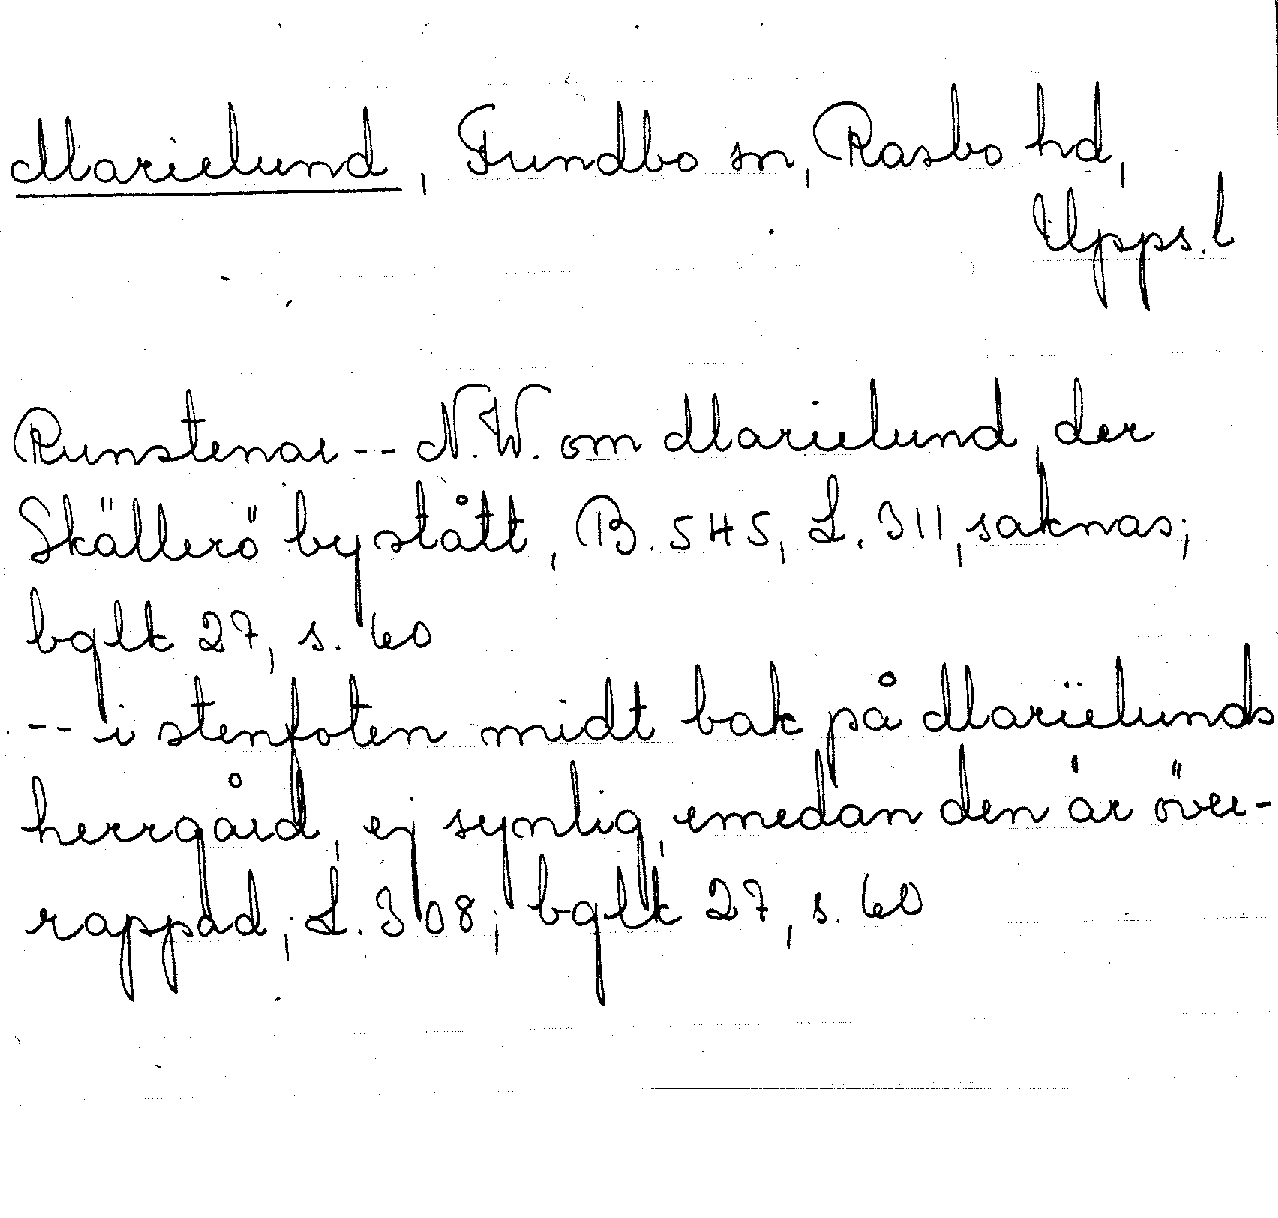 Marielund, Fundbo sn, Rasbo hd,
Upps. l
Runstenar -- N.W. om Marielund, der
Skällerö by stått, B. 545, L. 311, saknas;
bqlk 27, s. 60
-- i stenfoten midt bak på Marielunds
herrgård, ej synlig, emedan den är över-
rappad; L. 308; bqlk 27, s. 60